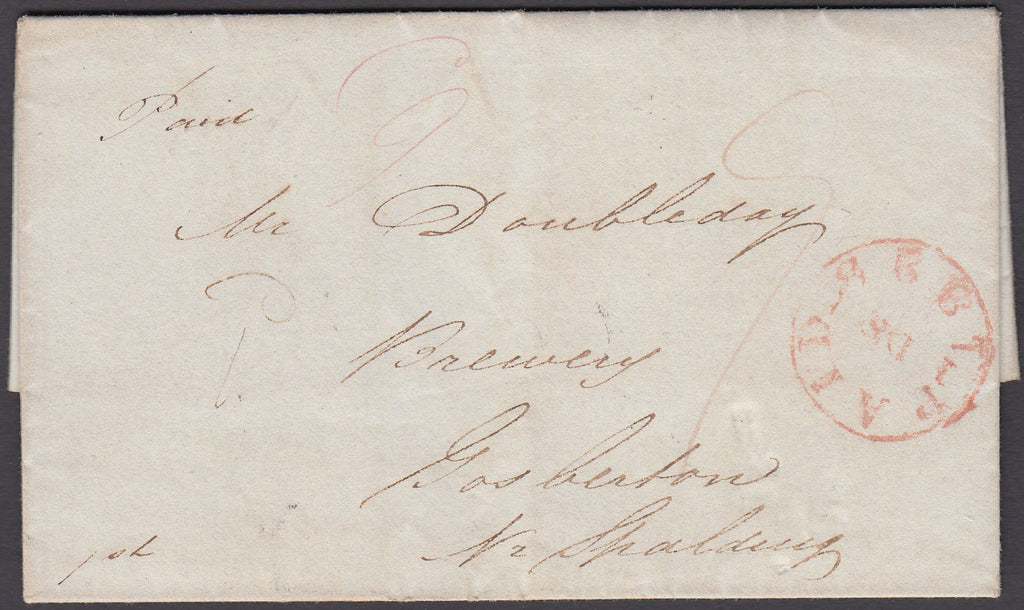 Paid
Mr Doubleday
Brewery
Gosberton
Nr Spalding
PAID